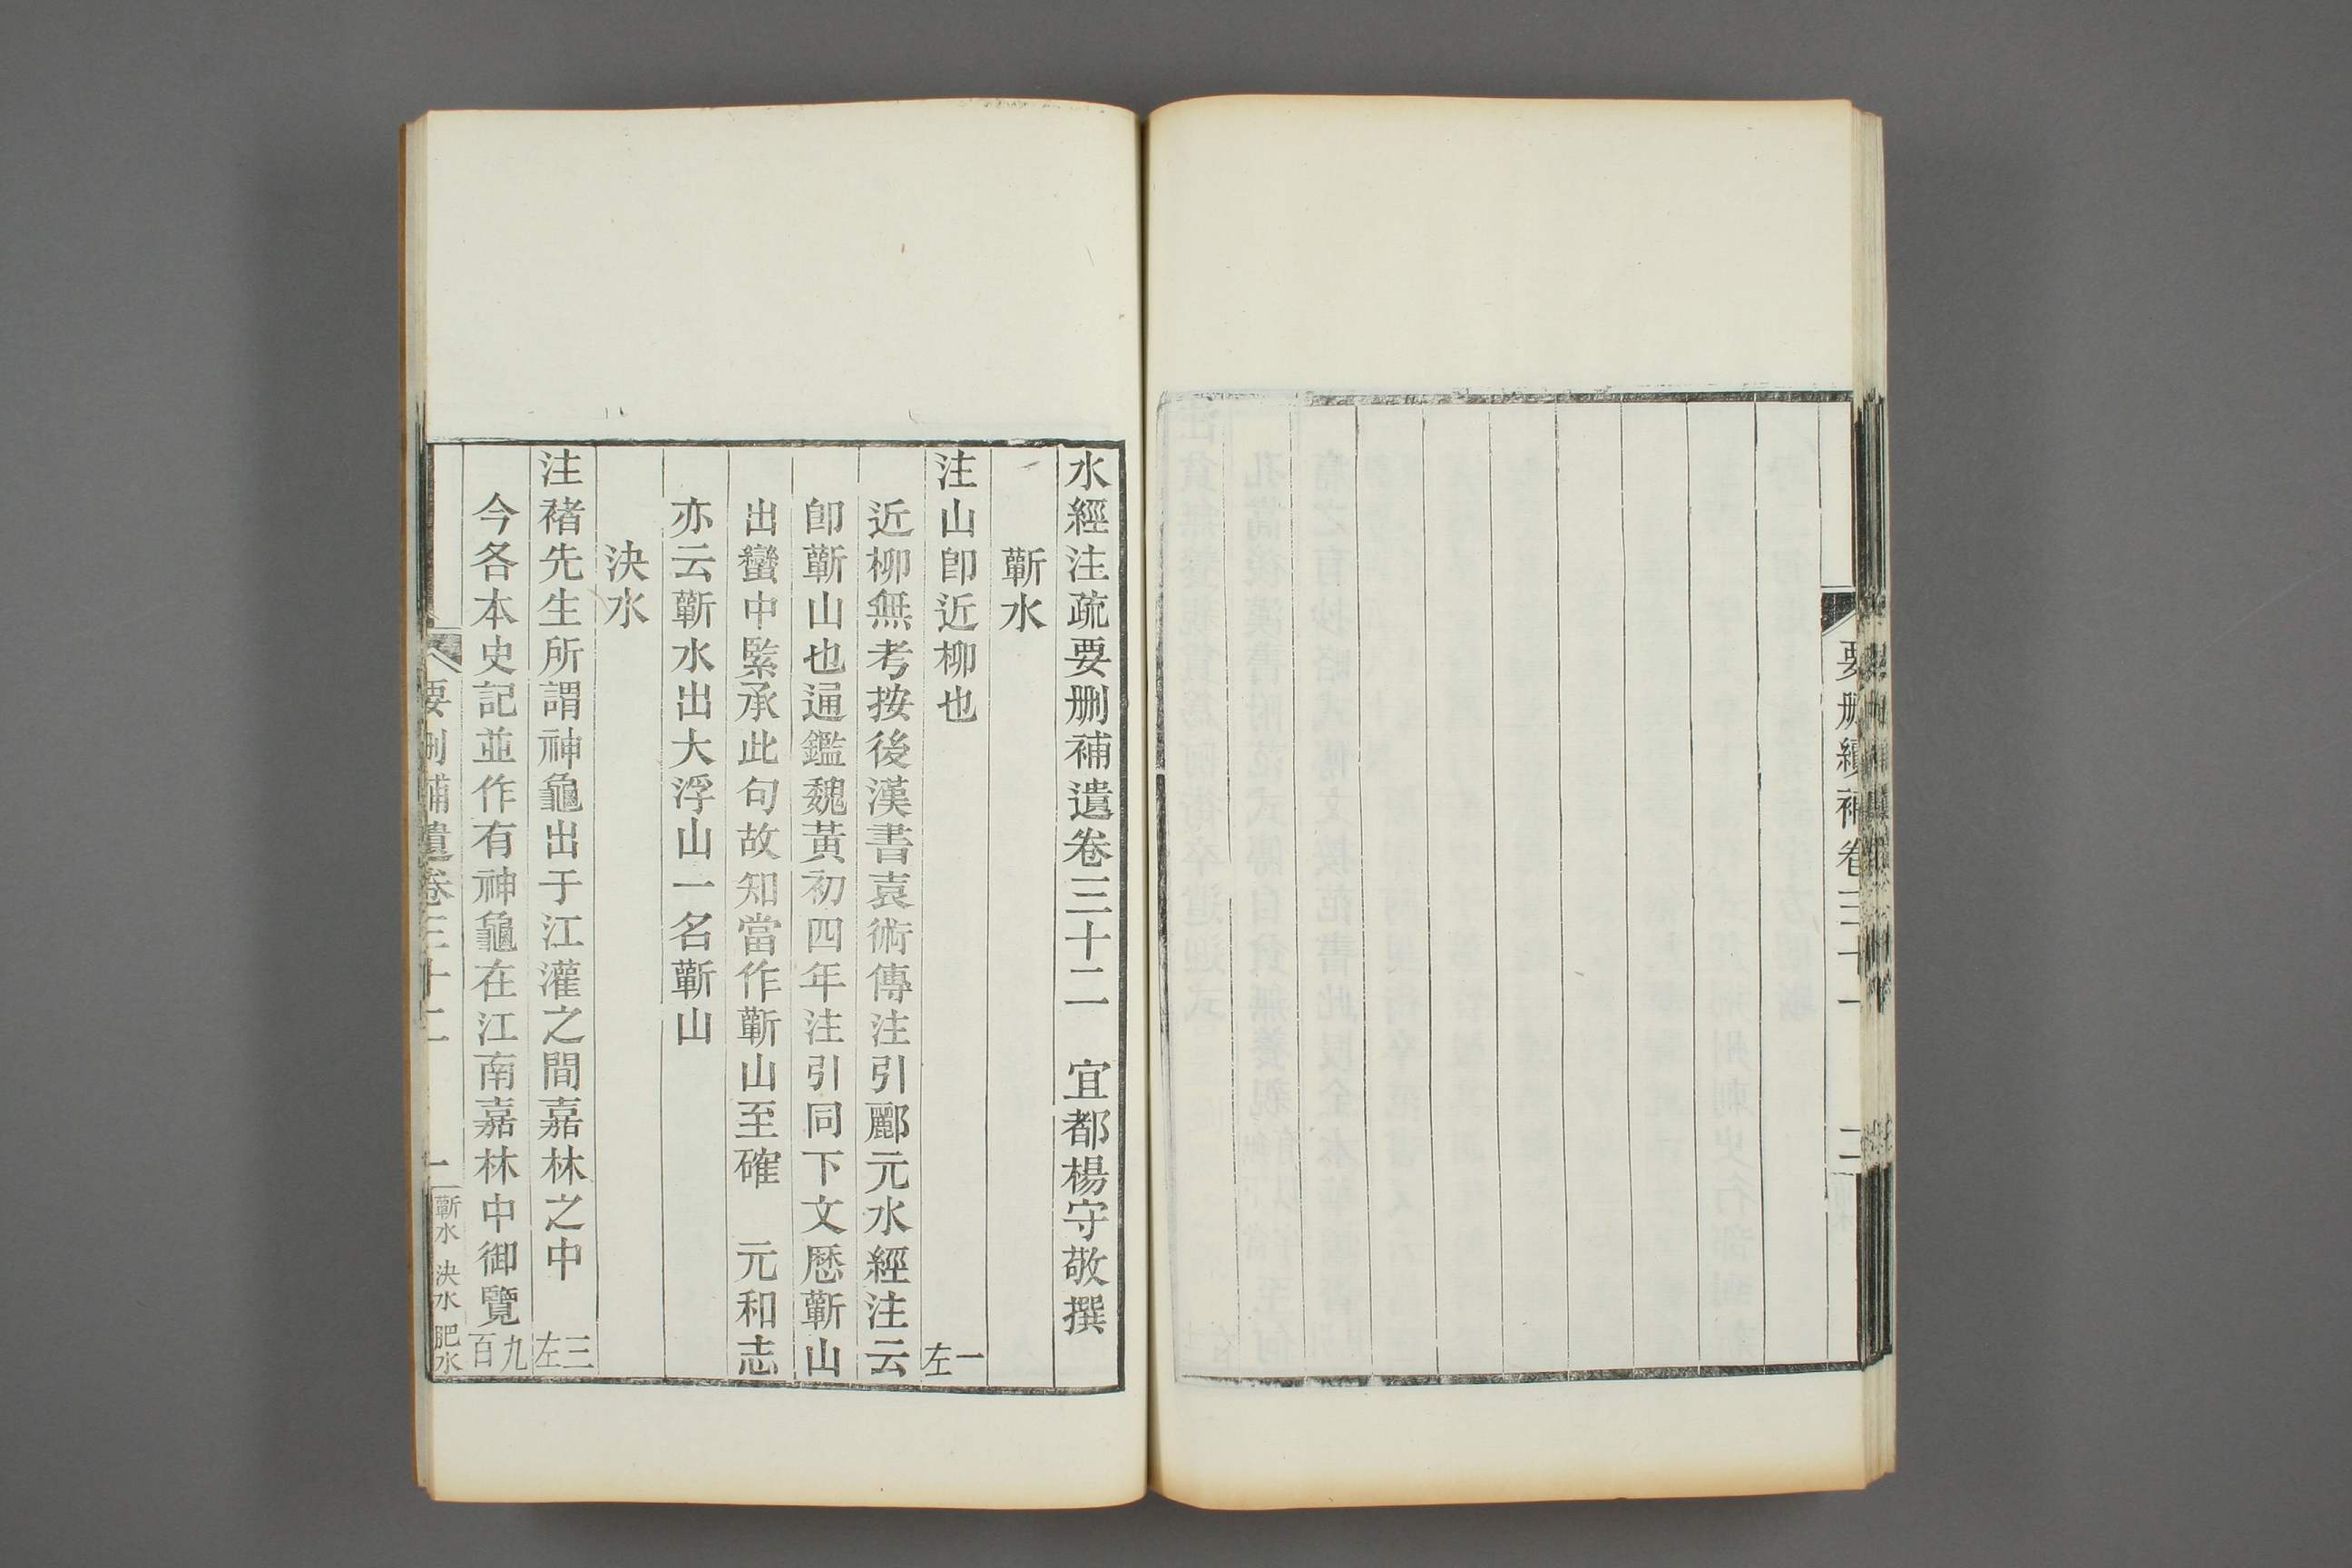 要刪續補卷三十一
二
水經注疏要刪補遺卷三十二　宜都楊守敬撰
蘄水
注山卽近柳也　一左
近柳無考按後漢書袁術傳注引酈元水經注云
卽蘄山也通鑑魏黃初四年注引同下文歷蘄山
出蠻中緊承此句故知當作蘄山至確　元和志
亦云蘄水出大浮山一名蘄山
決水
注褚先生所謂神龜出于江灌之間嘉林之中　三左
今各本史記並作有神龜在江南嘉林中御覽　九百
要刪補遺卷三十二
蘄水　決水　肥水